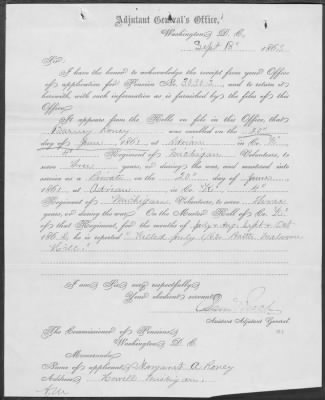 Adjutant General's Office,
Washington, D. C.
Sept 18" 186
Sir:
I have the honor to acknowledge the receipt from your Office
of application for Pension No. and to return it
herewith, with such information as is furnished by the files of this
Office.
It appears from the Rolls on file in this Office, that
Barney Roney was enrolled on the 20"
day of June, 1861, at Adrian in Co. "K"
4" Regiment of Michigan Volunteers, to
serve three years, or during the war, and mustered into
service as a Private on the 20" day of June
1861, at Adrian, in Co. "K" 4"
Regiment of Michigan Volunteers, to serve three
years, or during the war. On the Muster Roll of Co. "K"
of that Regiment, for the months of July & Aug. Sept & Oct
1862, he is reported "Killed July 1/62 Battle Malvern
Hill."
I am, Sir, very respectfully,
Your obedient servant,
Assistant Adjutant General.
The Commissioner of Pensions,
Washington, D. C.
Memoranda:
Name of applicant, Margaret A. Roney
Address, Howell Michigan.